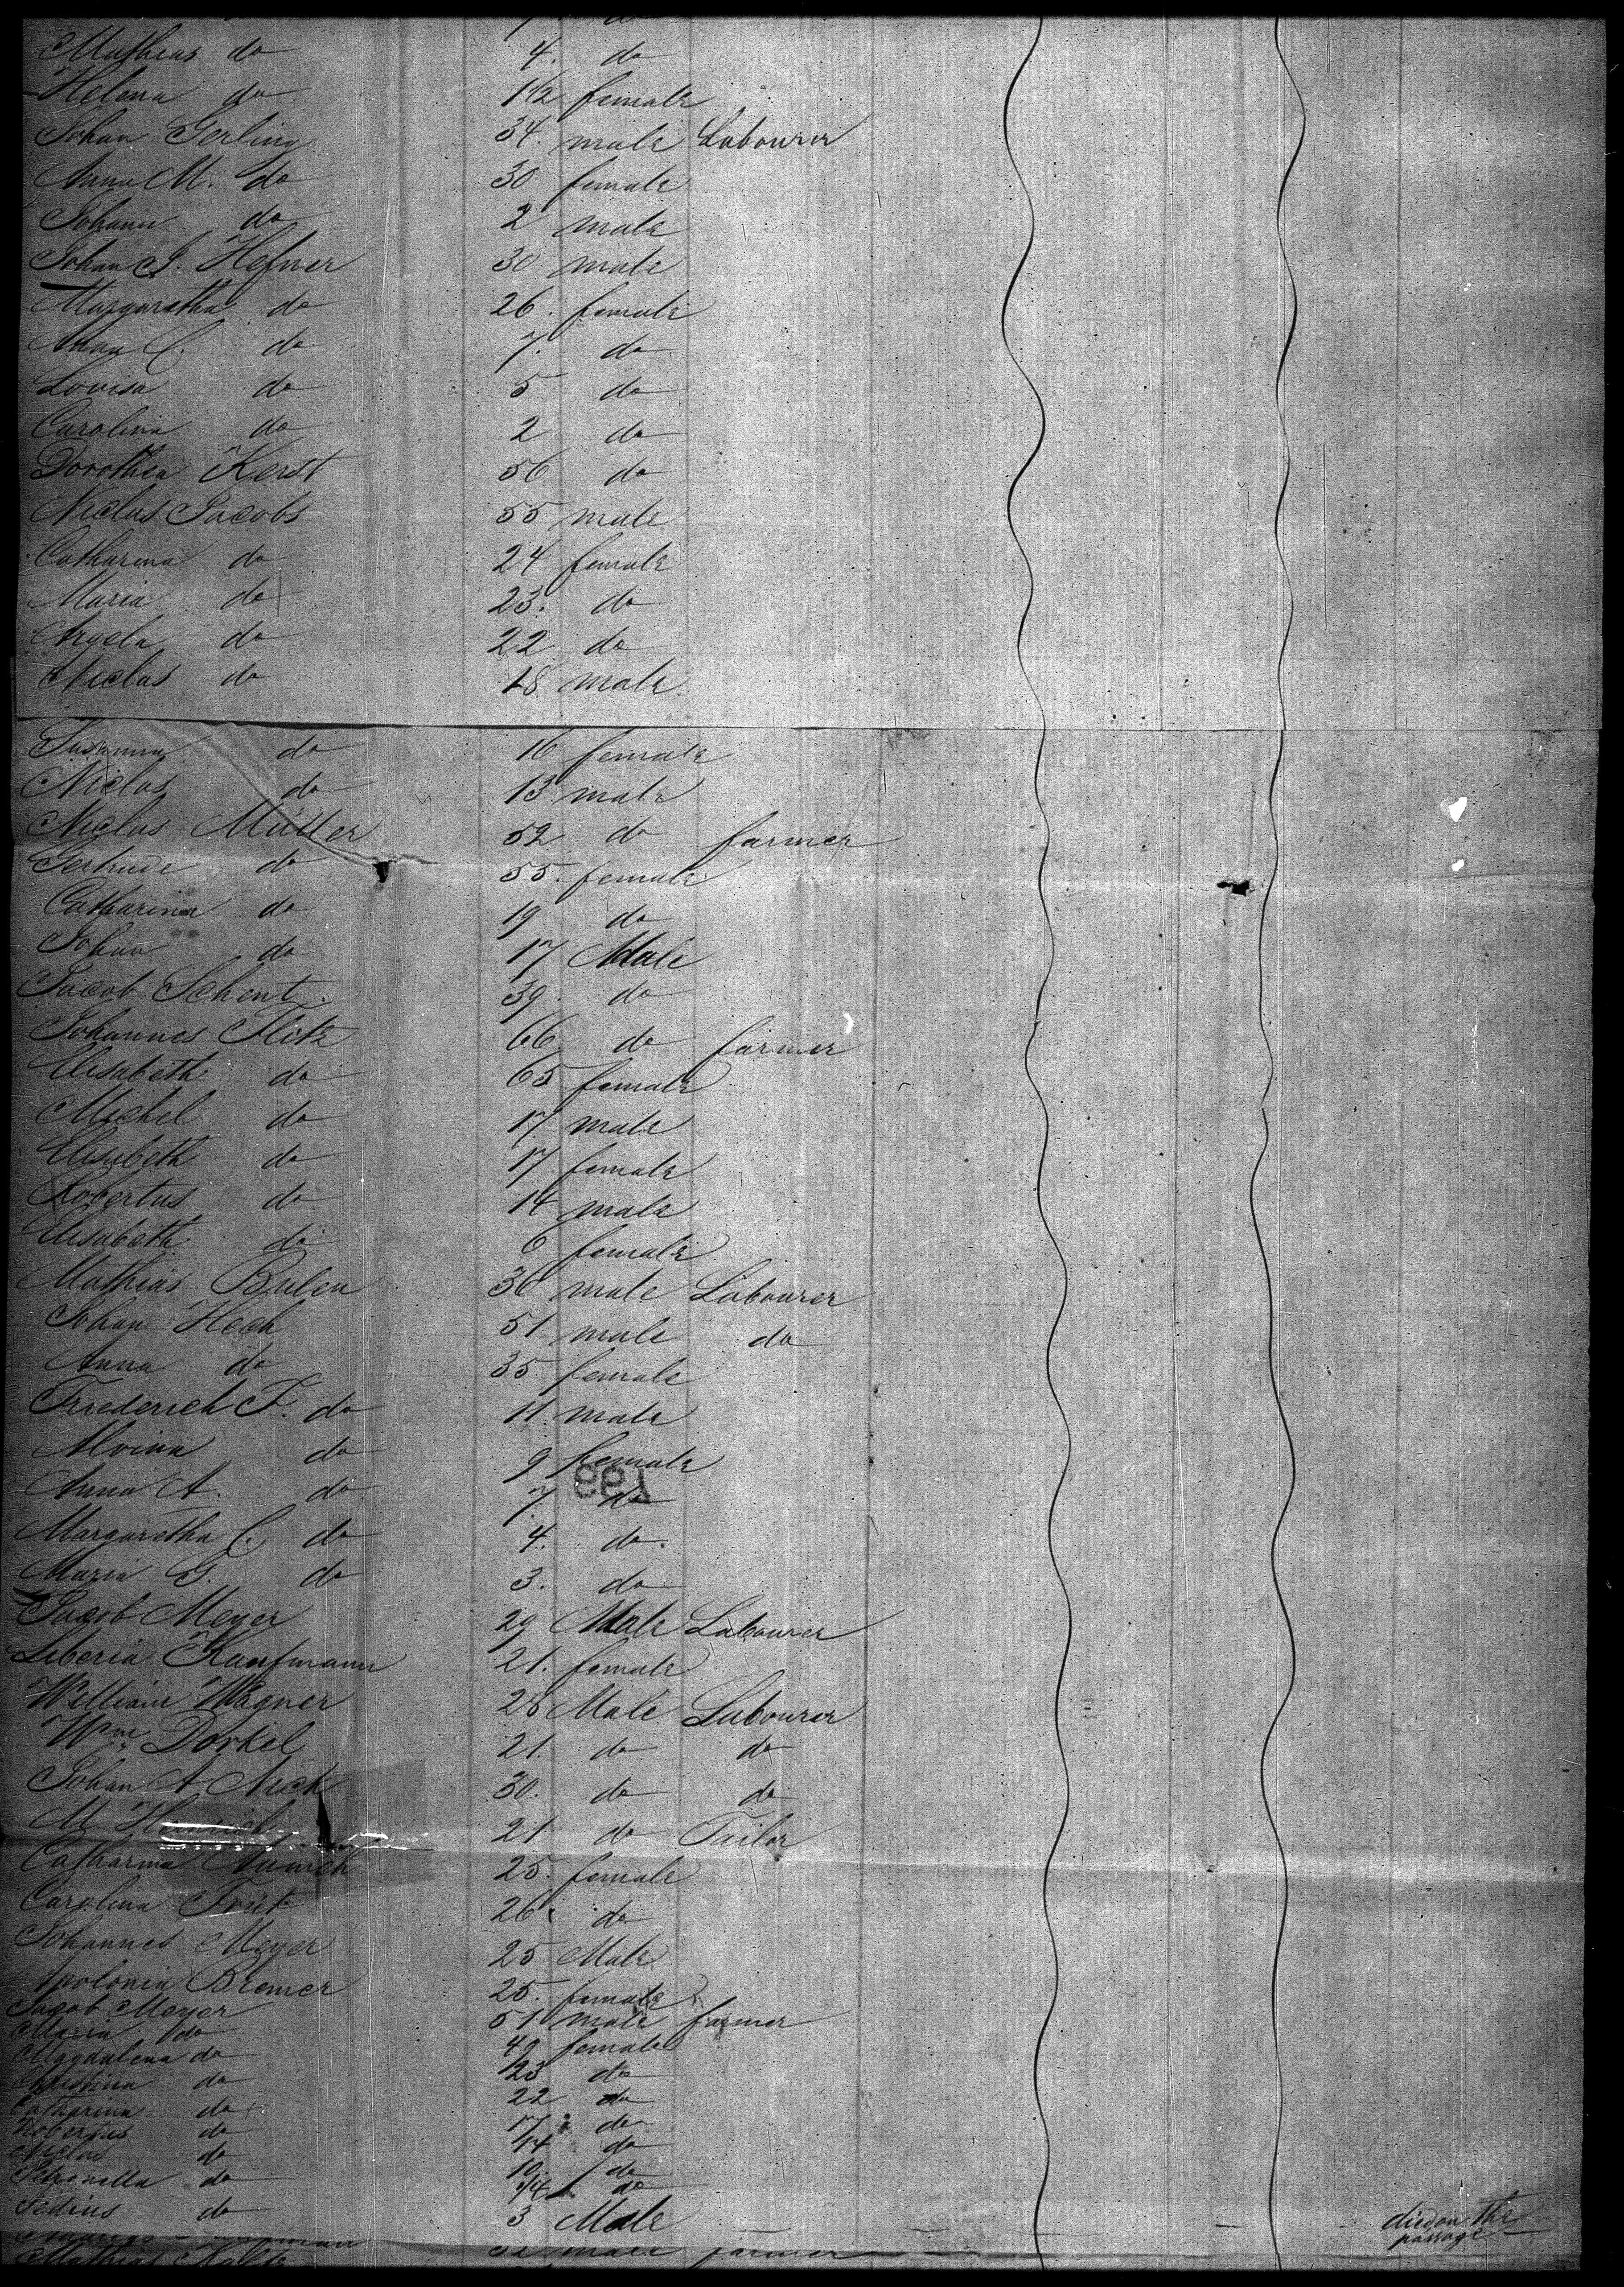 Mathias do 4. do
Helena do 1 1/2 female
Johan Gerling 34. male Labourer
Anna M. do 30 female
Johann do 2 male
Johan J. Hefner 30 male
Margaretha do 26. female
Anna C. do 7. do
Lovisa do 5 do
Carolina do 2 do
Dorothea Kerst 56 do
Niclas Jacobs 55 male
Catharina do 24 female
Maria do 23. do
Angela do 22 do
Niclas do 18 male
Susanna do 16 female
Niclas do 13 male
Niclas Müller 52 do farmer
Gertrude do 55. female
Catharina do 19 do
Johan do 17 Male
Jacob Schent 39. do
Johannes Flitz 66. do farmer
Elisabeth do 65 female
Michel do 17 male
Elisabeth do 17 female
Robertus do 14 male
Elisabeth do 6 female
Mathias Bulen 36 male Labourer
Johan Hech 51 male do
Anna do 35. female
Friederich F. do 11. male
Alvina do 9 female
Anna A. do 7. do
Margaretha C. do 4. do.
Maria G. do 3. do
Jacob Meyer 29 Male Labourer
Liberia Kaufmann 21. female
William Wagner 28 Male Labourer
Wm Dorkel 21. do do
Johan A Nick 30. do do
M Heinrich 21 do Tailor
Catharina 25. female
Carolina 26. do
Johannes Meyer 25 Male
Apolonia Bremer 25. female
Jacob Meyer 51 male farmer
Maria do 49 female
Magdalena do 23 do
Christina do 22 do
Catharina do 17 do
Robertus do 14 do
Niclas do 10 do
Petronella do 3/4 do
do 3 Male died on the passage
Mathias male farmer